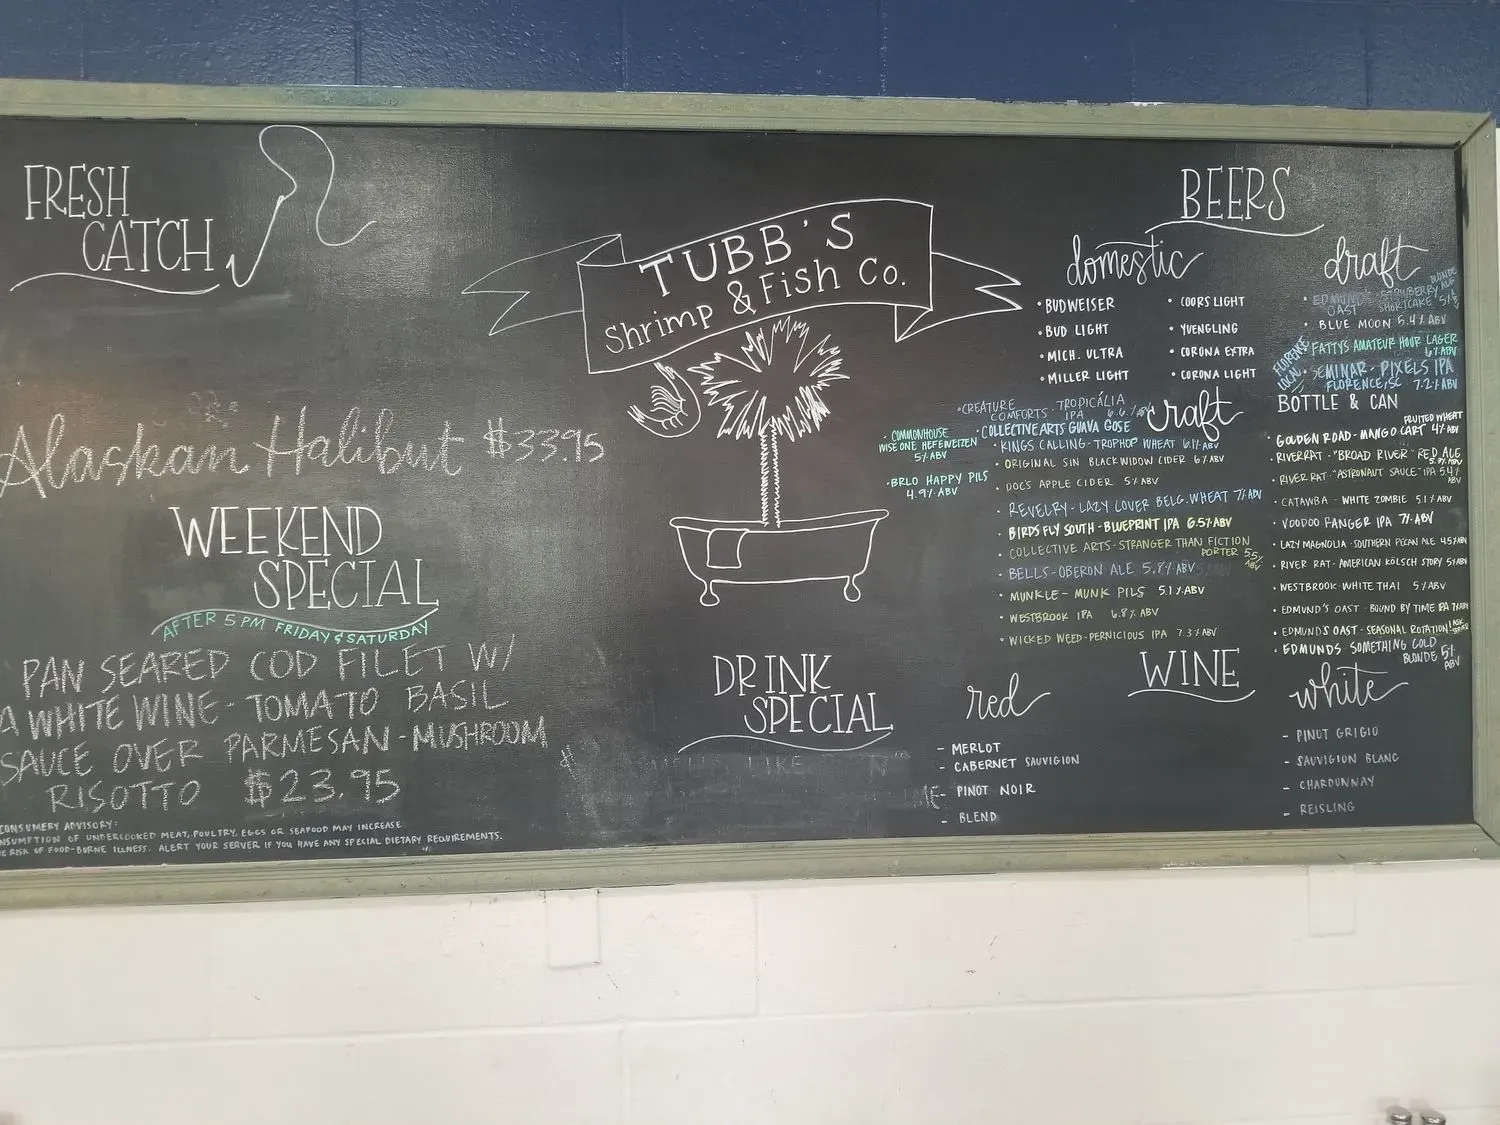 FRESH
CATCH
Alaskan Halibut $33.95
WEEKEND
SPECIAL
AFTER 5 PM FRIDAY & SATURDAY
PAN SEARED COD FILET W/
A WHITE WINE - TOMATO BASIL
SAUCE OVER PARMESAN - MUSHROOM
RISOTTO $23.95
CONSUMERY ADVISORY:
NSUMPTION OF UNDERCOOKED MEAT, POULTRY, EGGS OR SEAFOOD MAY INCREASE
E RISK OF FOOD-BORNE ILLNESS. ALERT YOUR SERVER IF YOU HAVE ANY SPECIAL DIETARY REQUIREMENTS.
TUBB'S
Shrimp & Fish Co.
DRINK
SPECIAL
BEERS
domestic
• BUDWEISER
• BUD LIGHT
• MICH. ULTRA
• MILLER LIGHT
• COORS LIGHT
• YUENGLING
• CORONA EXTRA
• CORONA LIGHT
craft
• CREATURE COMFORTS - TROPICÁLIA
IPA 6.6% ABV
• COLLECTIVE ARTS GUAVA GOSE
• KINGS CALLING - TROPHOP WHEAT 6.1% ABV
• ORIGINAL SIN BLACK WIDOW CIDER 6% ABV
• DOC'S APPLE CIDER 5% ABV
• REVELRY - LAZY LOVER BELG. WHEAT 7% ABV
• BIRDS FLY SOUTH - BLUEPRINT IPA 6.5% ABV
• COLLECTIVE ARTS - STRANGER THAN FICTION
PORTER 5.5% ABV
• BELLS - OBERON ALE 5.8% ABV
• MUNKLE - MUNK PILS 5.1% ABV
• WESTBROOK IPA 6.8% ABV
• WICKED WEED - PERNICIOUS IPA 7.3% ABV
• COMMONHOUSE
WISE ONE HEFEWEIZEN
5% ABV
• BRLO HAPPY PILS
4.9% ABV
draft
• EDMUND'S OAST STRAWBERRY SHORTCAKE BLONDE ALE 5%
• BLUE MOON 5.4% ABV
• FATTYS AMATEUR HOUR LAGER
6% ABV
FLORENCE
LOCAL
• SEMINAR - PIXELS IPA
FLORENCE, SC 7.2% ABV
BOTTLE & CAN
• GOLDEN ROAD - MANGO CART FRUITED WHEAT 4% ABV
• RIVER RAT - "BROAD RIVER" RED ALE
• RIVER RAT - "ASTRONAUT SAUCE" IPA 5.4% ABV
• CATAWBA - WHITE ZOMBIE 5.1% ABV
• VOODOO RANGER IPA 7% ABV
• LAZY MAGNOLIA - SOUTHERN PECAN ALE 4.5% ABV
• RIVER RAT - AMERICAN KÖLSCH STORY 5% ABV
• WESTBROOK - WHITE THAI 5% ABV
• EDMUND'S OAST - BOUND BY TIME IPA 7% ABV
• EDMUND'S OAST - SEASONAL ROTATION!
• EDMUNDS SOMETHING COLD
BLONDE 5% ABV
WINE
red
- MERLOT
- CABERNET SAUVIGION
- PINOT NOIR
- BLEND
white
- PINOT GRIGIO
- SAUVIGION BLANC
- CHARDONNAY
- REISLING